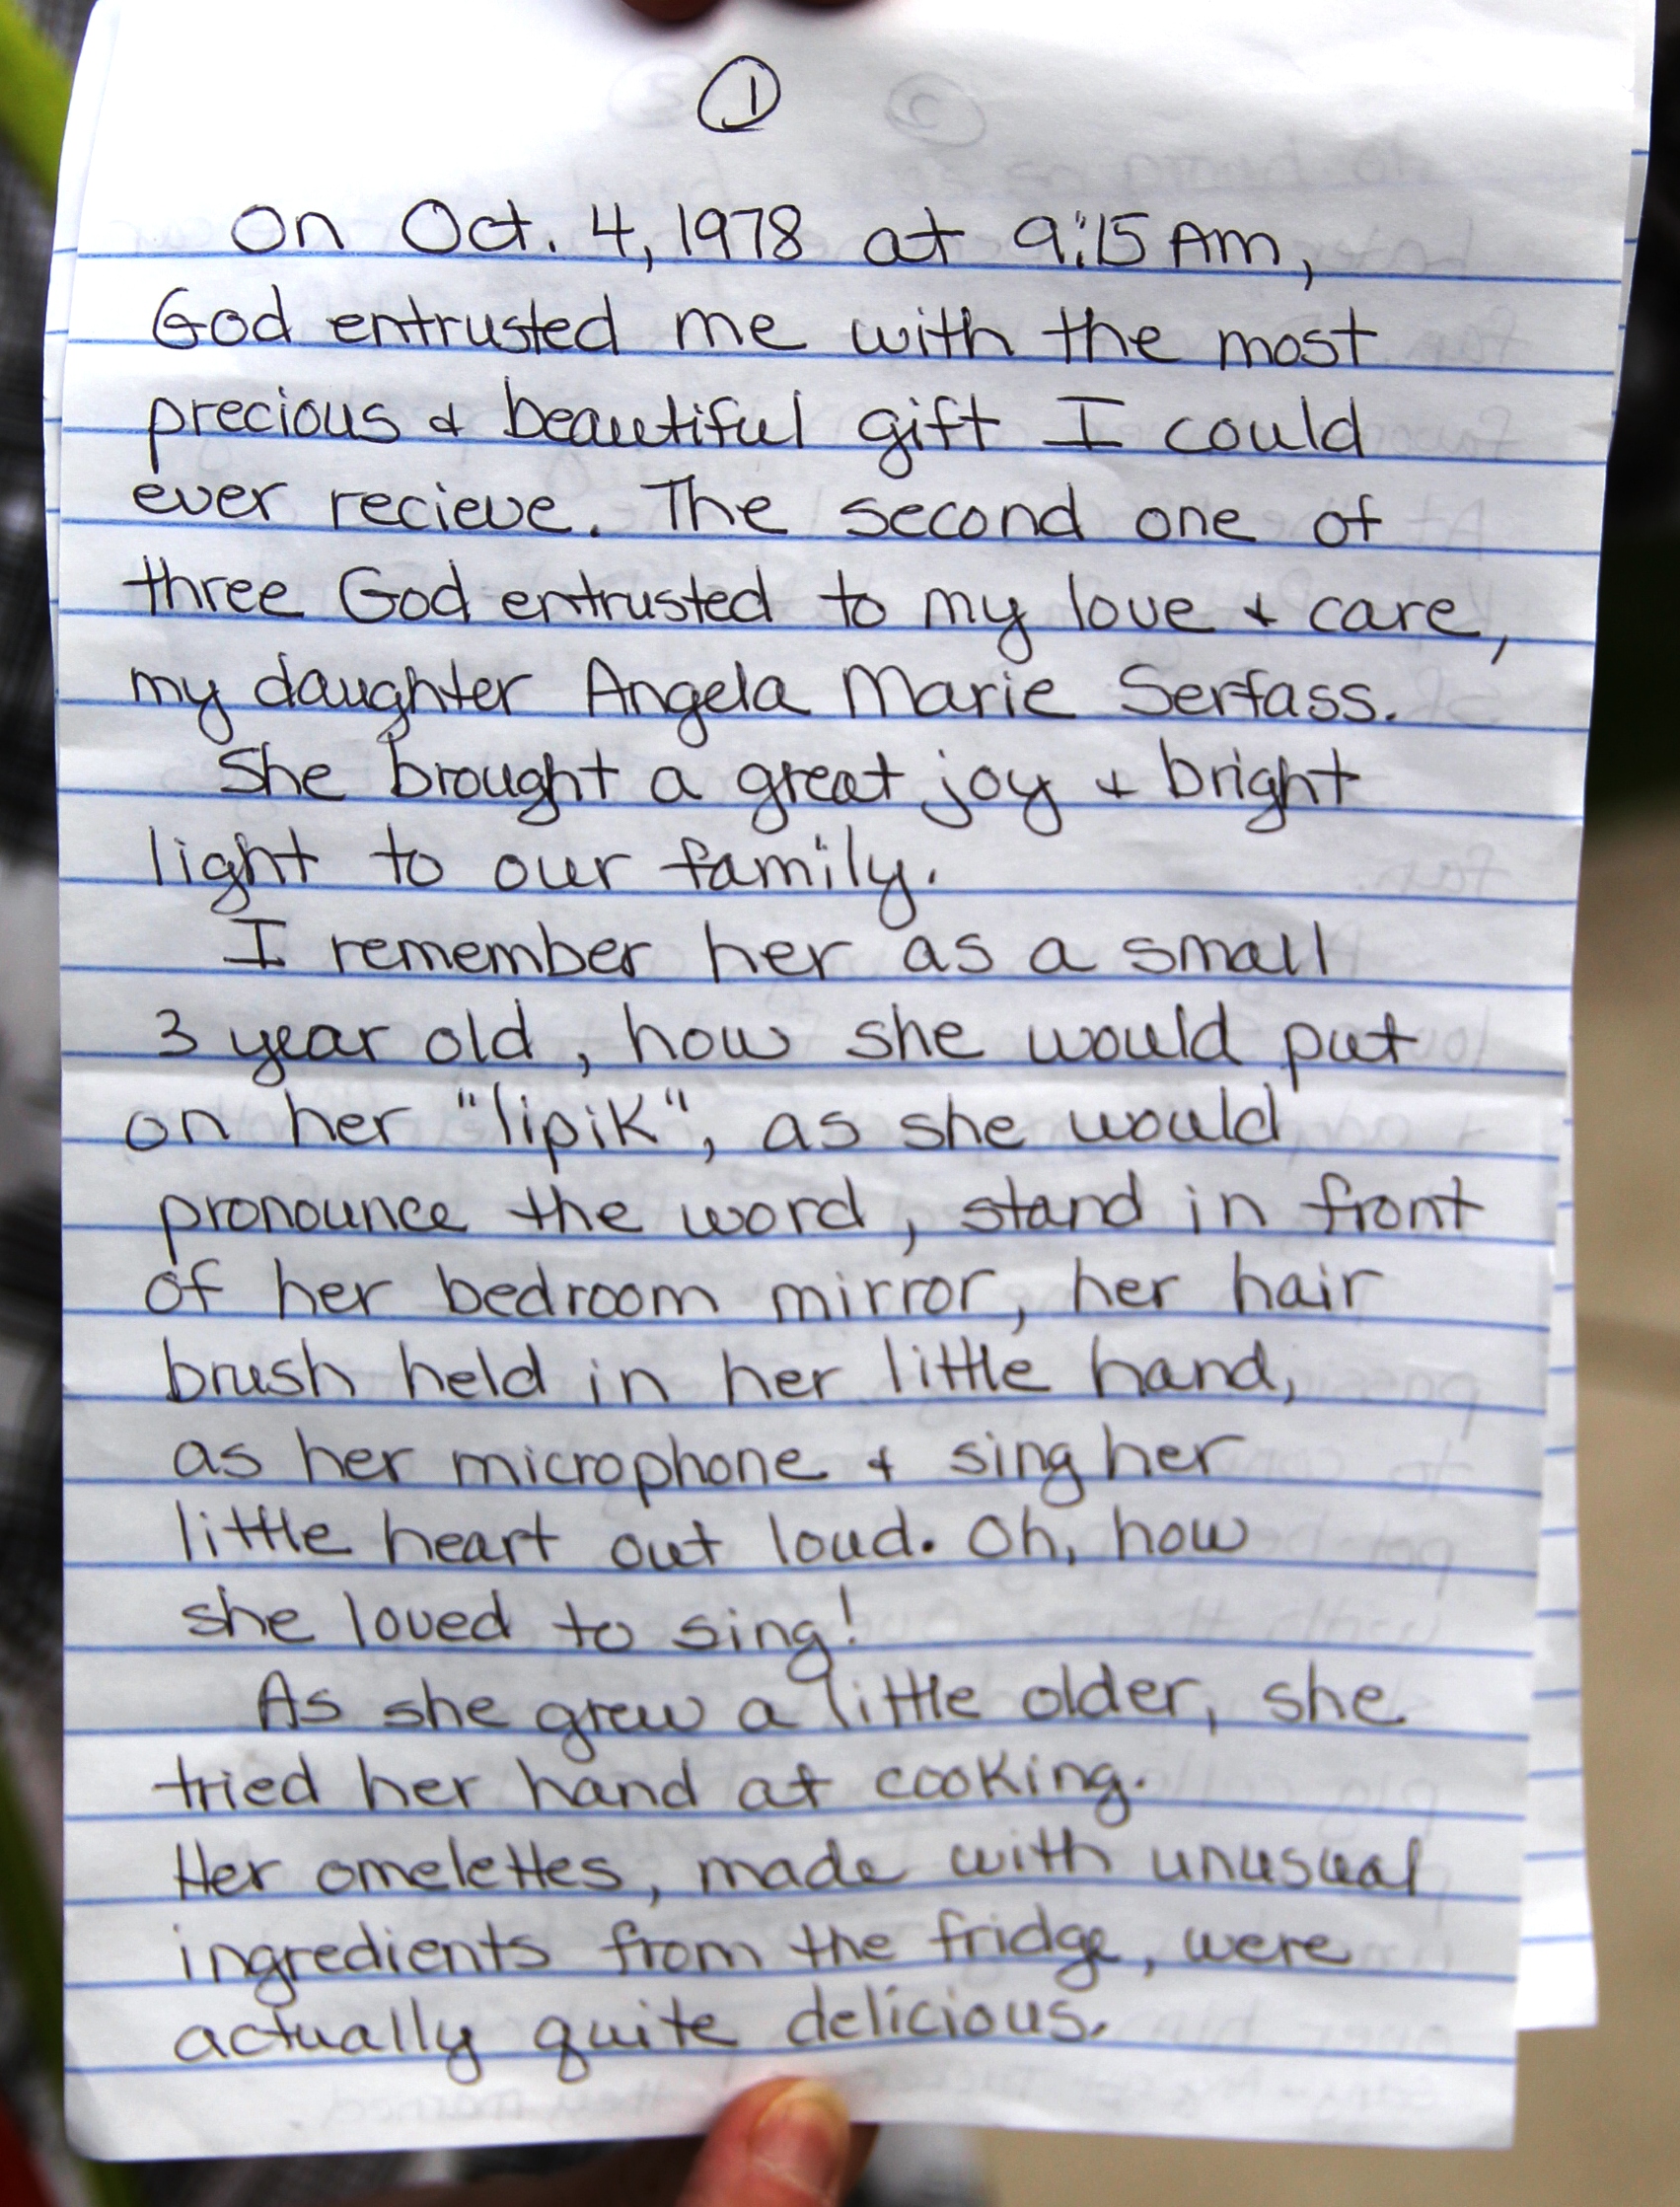 ①
On Oct. 4, 1978 at 9:15 AM,
God entrusted me with the most
precious & beautiful gift I could
ever recieve. The second one of
three God entrusted to my love & care,
my daughter Angela Marie Serfass.
She brought a great joy & bright
light to our family.
I remember her as a small
3 year old, how she would put
on her "lipik", as she would
pronounce the word, stand in front
of her bedroom mirror, her hair
brush held in her little hand,
as her microphone & sing her
little heart out loud. Oh, how
she loved to sing!
As she grew a little older, she
tried her hand at cooking.
Her omelettes, made with unusual
ingredients from the fridge, were
actually quite delicious.